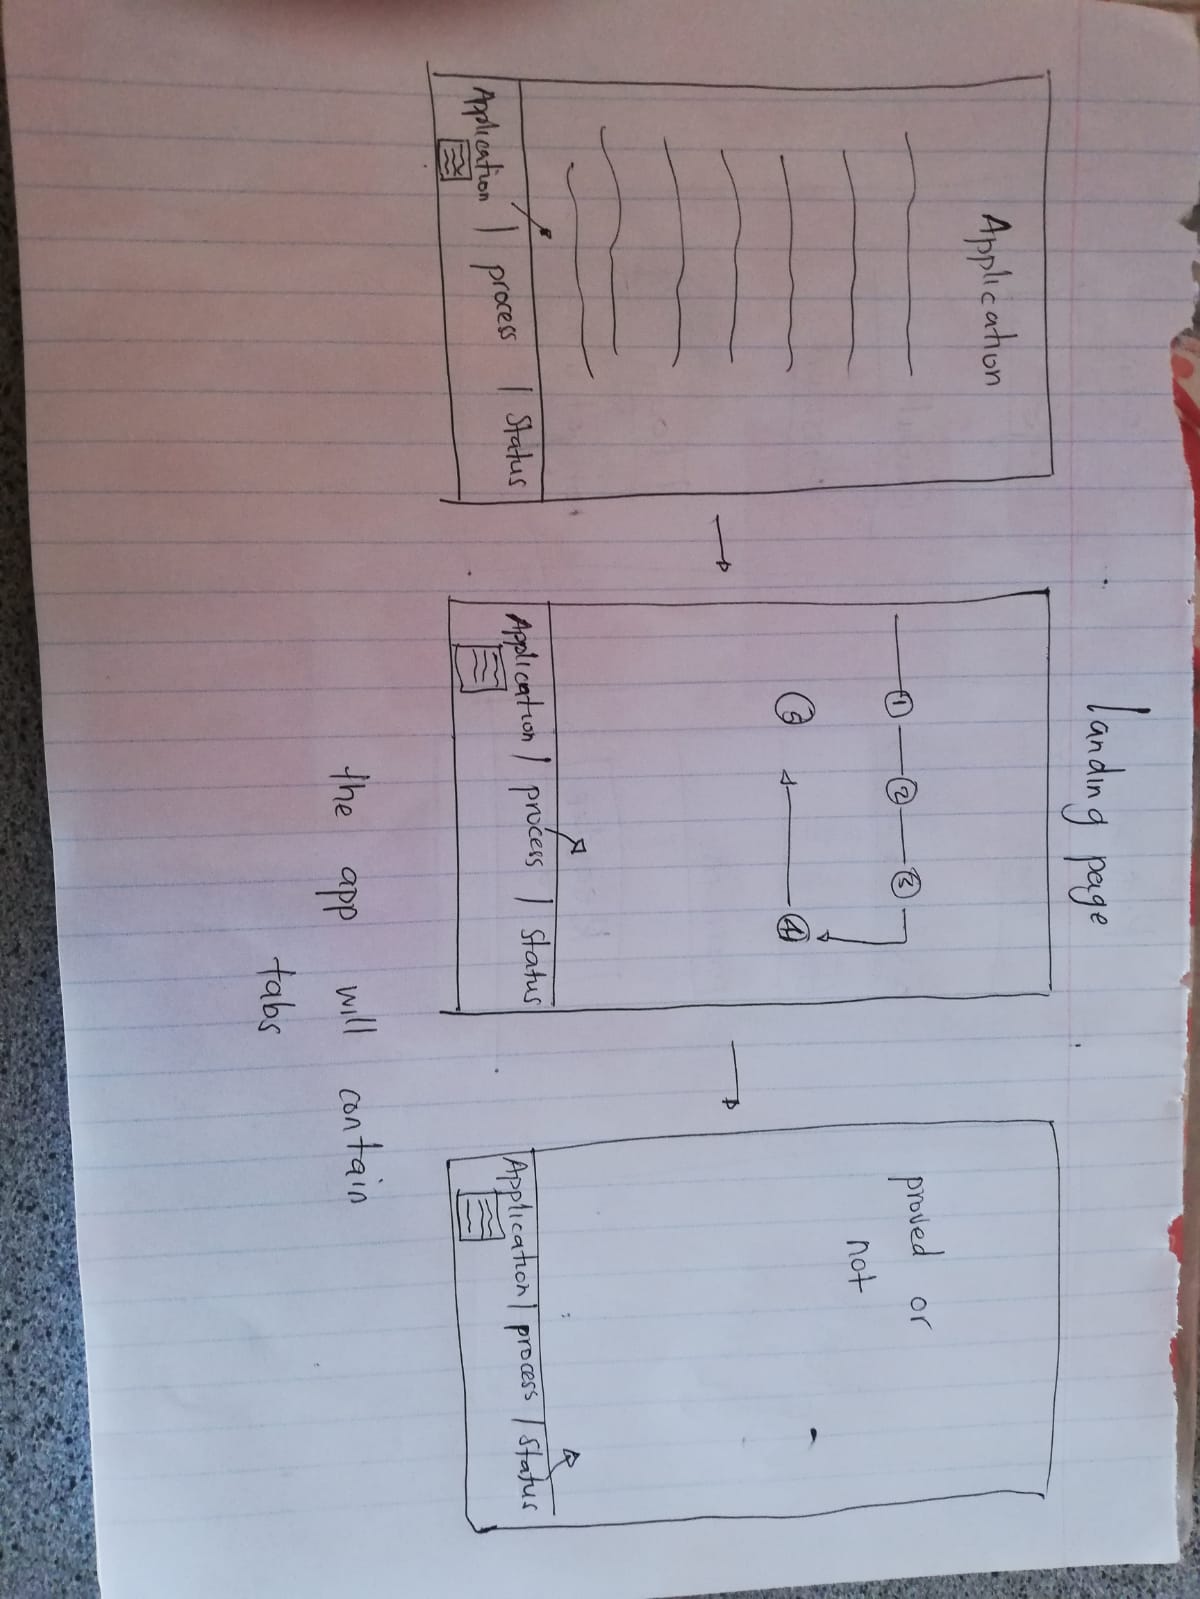 landing page
Application
Application | process | Status
1 2 3
5 4
Application | process | Status
proved or
not
Application | process | Status
the app will contain
tabs